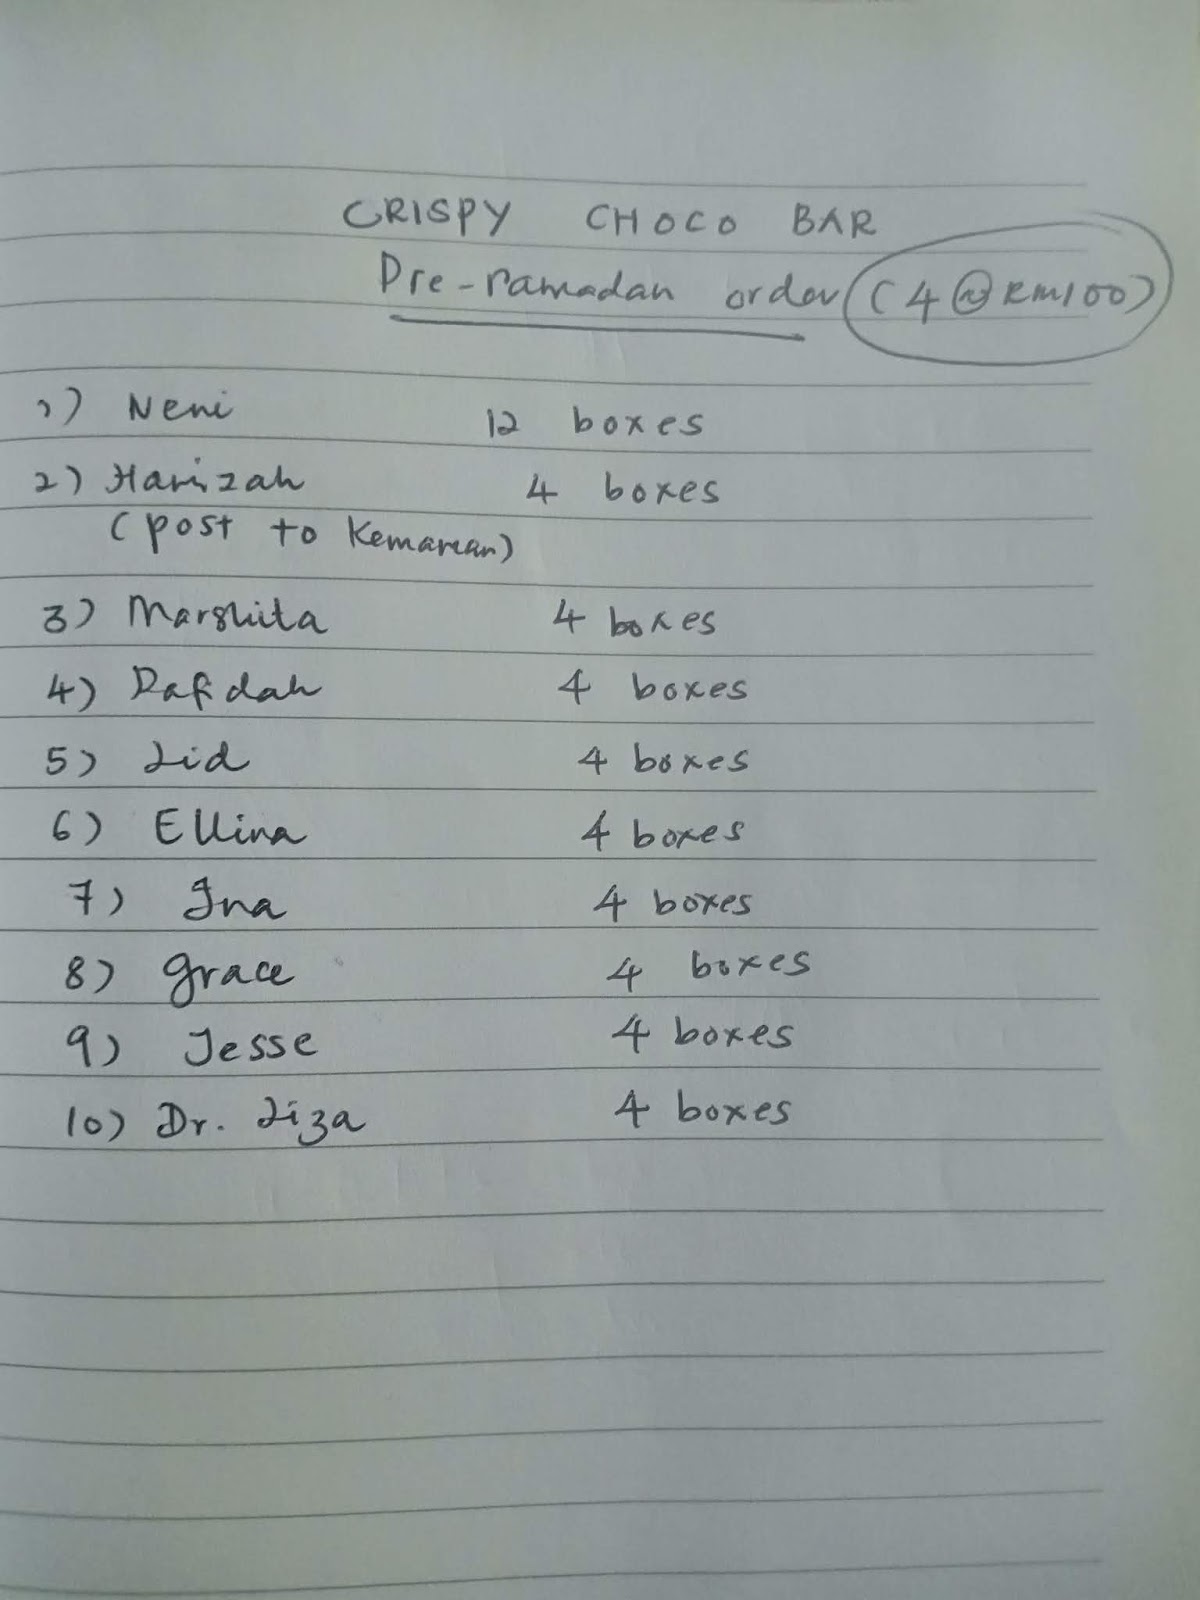 CRISPY CHOCO BAR
Pre-ramadan order (4 @ RM100)
1) Neni 12 boxes
2) Harizah 4 boxes
(post to Kemaman)
3) Marshita 4 boxes
4) Rafidah 4 boxes
5) Lid 4 boxes
6) Ellina 4 boxes
7) Ina 4 boxes
8) Grace 4 boxes
9) Jesse 4 boxes
10) Dr. Liza 4 boxes